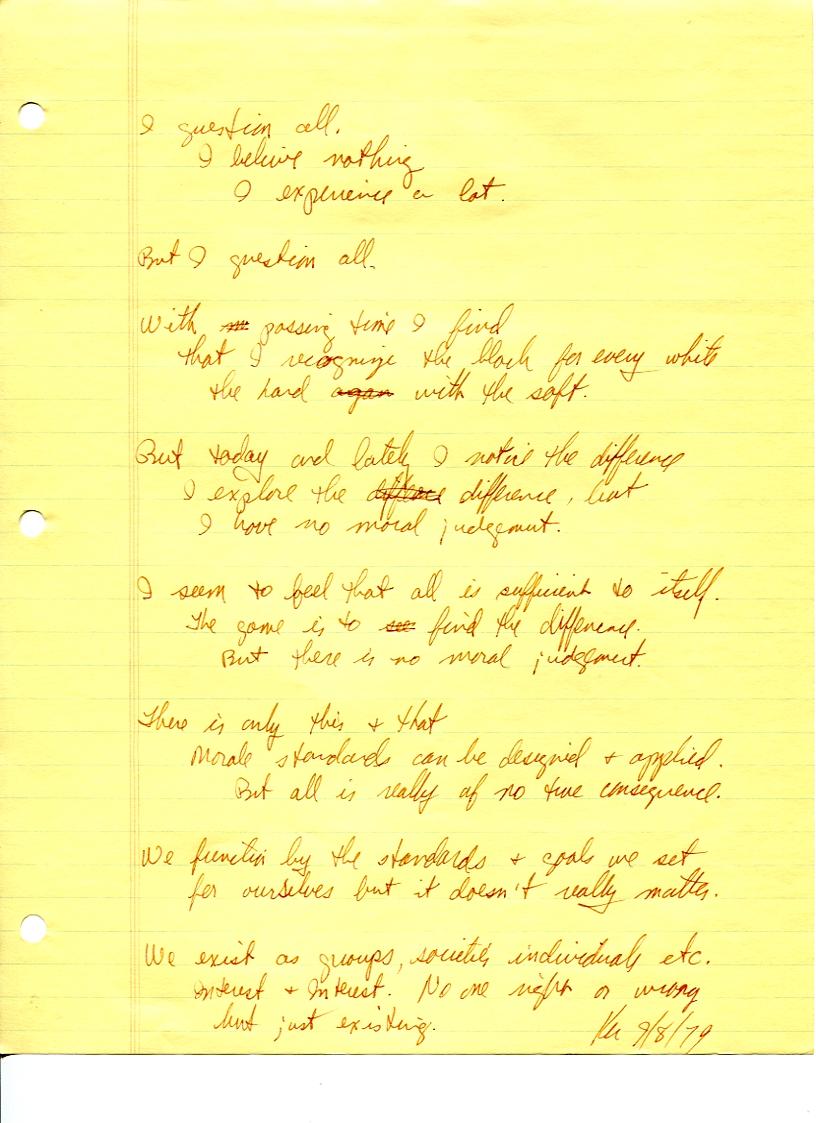 I question all.
I believe nothing
I experience a lot.
But I question all.
With passing time I find
that I recognize the black for every white
the hard again with the soft.
But today and lately I notice the difference
I explore the difference, but
I have no moral judgement.
I seem to feel that all is sufficient to itself.
The game is to see find the difference.
But there is no moral judgement.
There is only this + that
Morale standards can be designed + applied.
But all is really of no true consequence.
We function by the standards + goals we set
for ourselves but it doesn't really matter.
We exist as groups, societies individuals etc.
Interest + Interest. No one right or wrong
but just existing.
9/8/79